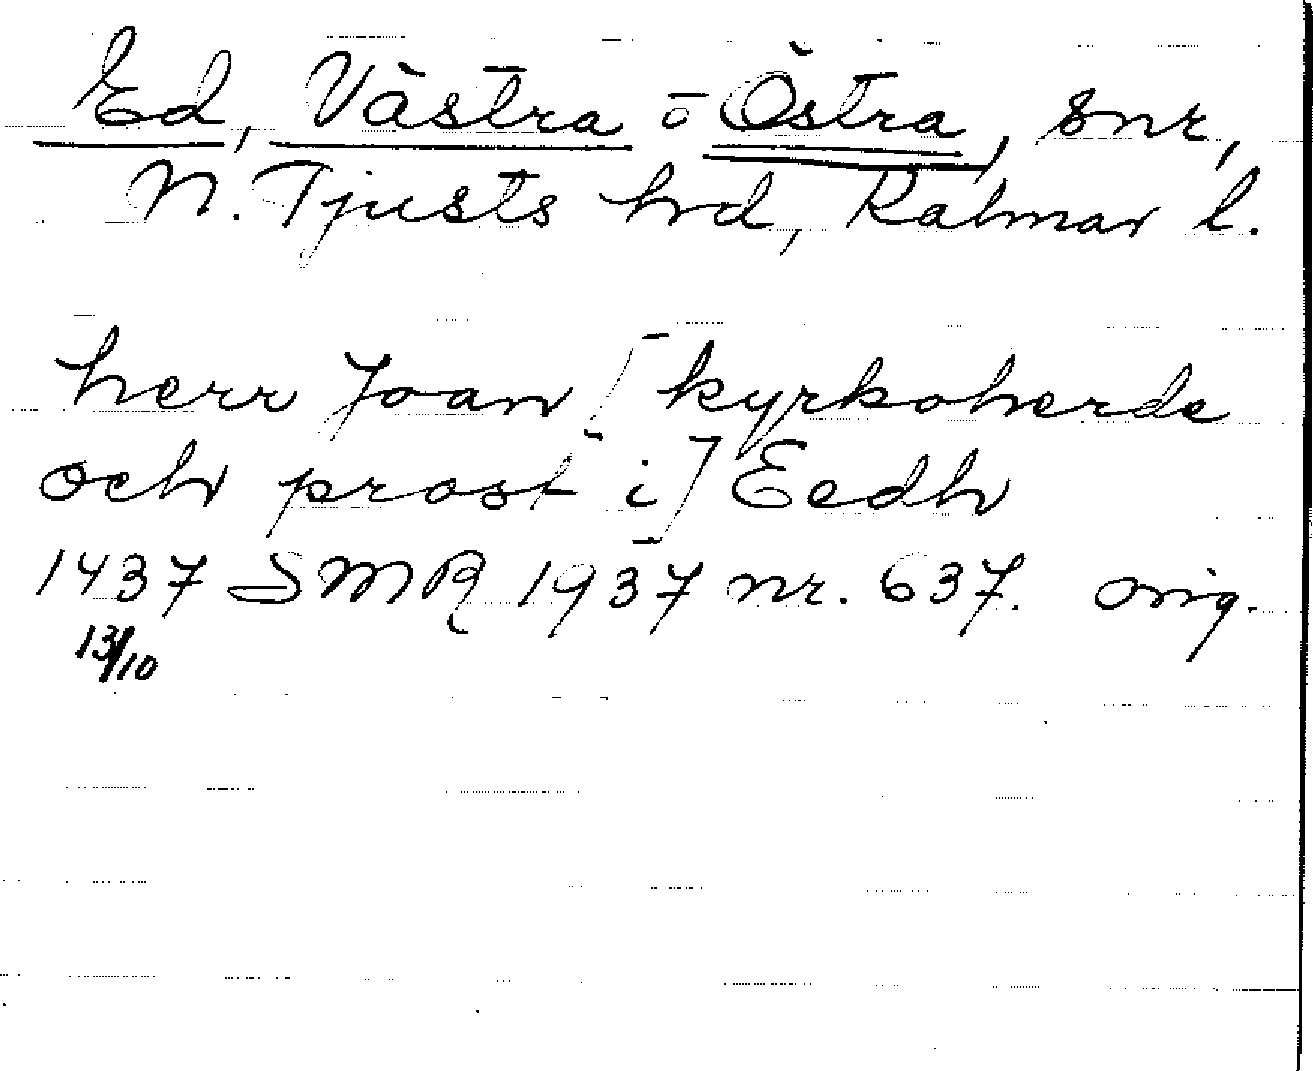 Ed, Västra o Östra, snr,
N. Tjusts hrd, Kalmar l.
herr Joan [kyrkoherde
och prost i] Eedh
1437 SMR 1937 nr. 637. orig.
13/10